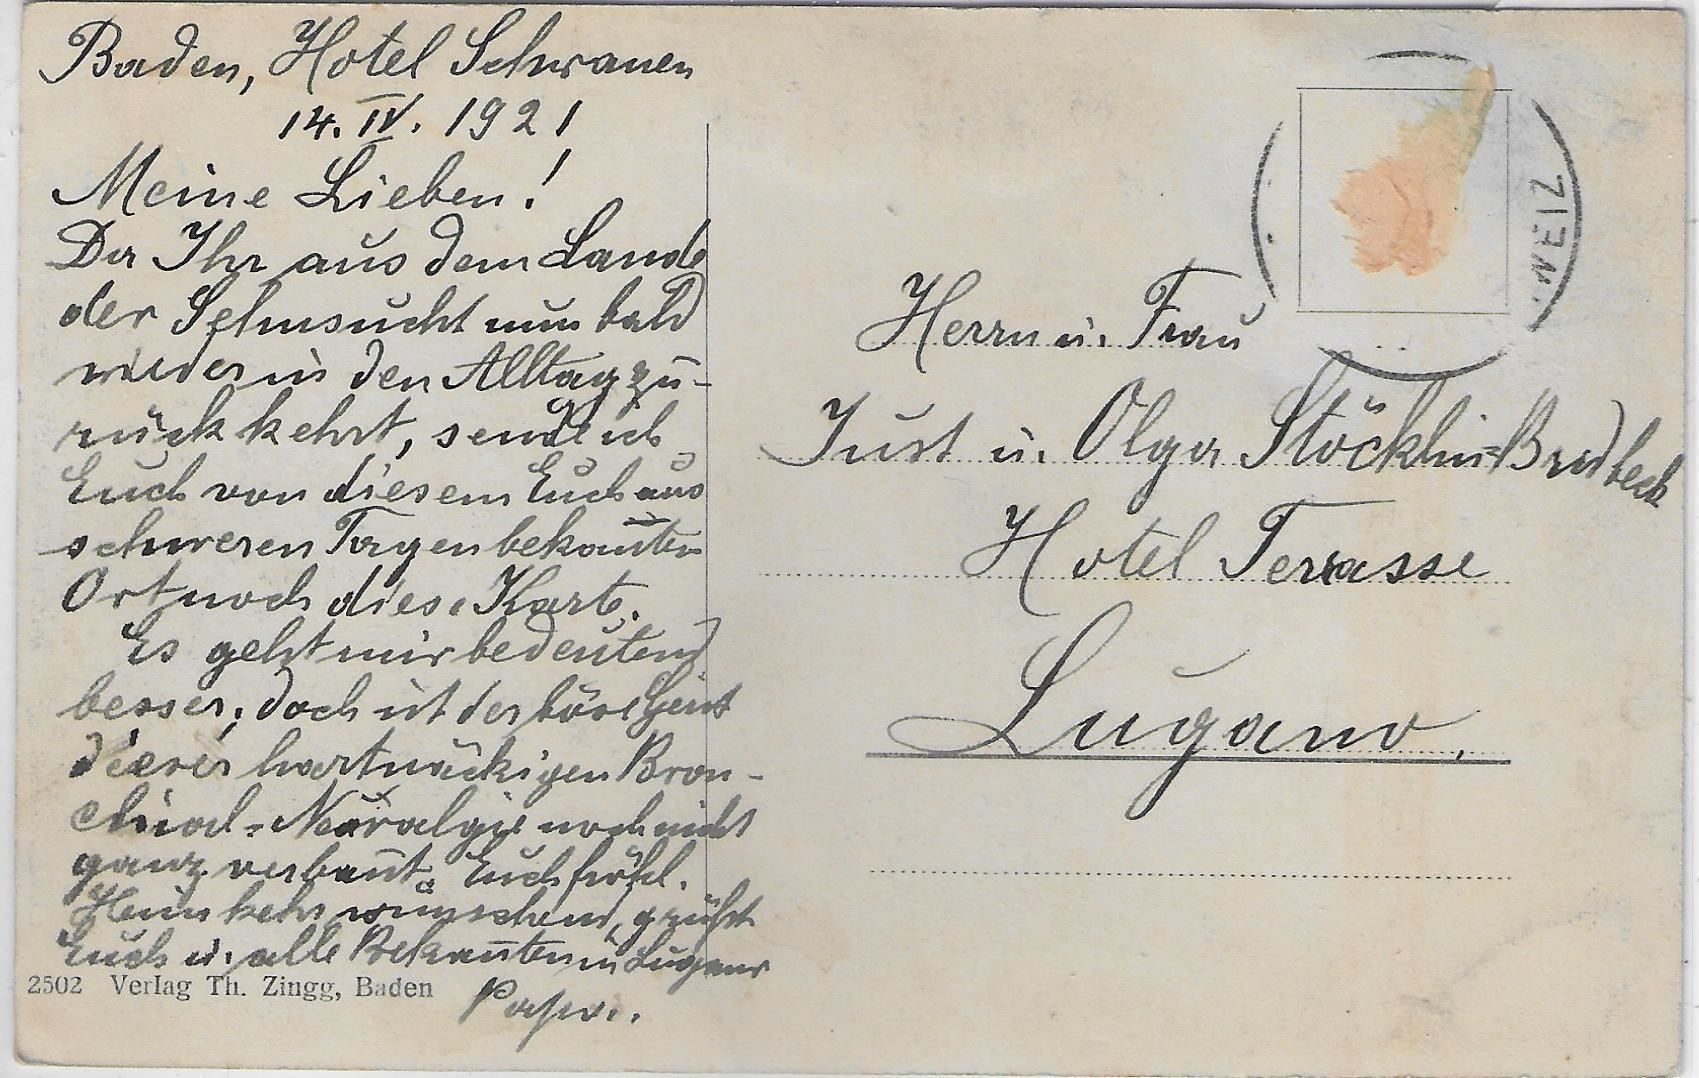 Baden, Hotel Schwanen
14. IV. 1921
Meine Lieben!
Da Ihr aus dem Lande
der Sehnsucht nun bald
wieder in den Alltag zu-
rückkehrt, sende ich
Euch von diesem Euch aus
schweren Tagen bekañten
Ort noch diese Karte.
Es geht mir bedeutend
besser; doch ist der böse Geist
dieser hartnäckigen Bron-
chial-Neuralgie noch nicht
ganz verbañt. Euch fröhl.
Heimkehr wünschend, grüßt
Euch u. alle Bekañten in Lugano
Papa.
2502 Verlag Th. Zingg, Baden
WEIZ
Herrn u. Frau
Just u. Olga Stöcklin-Brodbeck
Hotel Terrasse
Lugano.